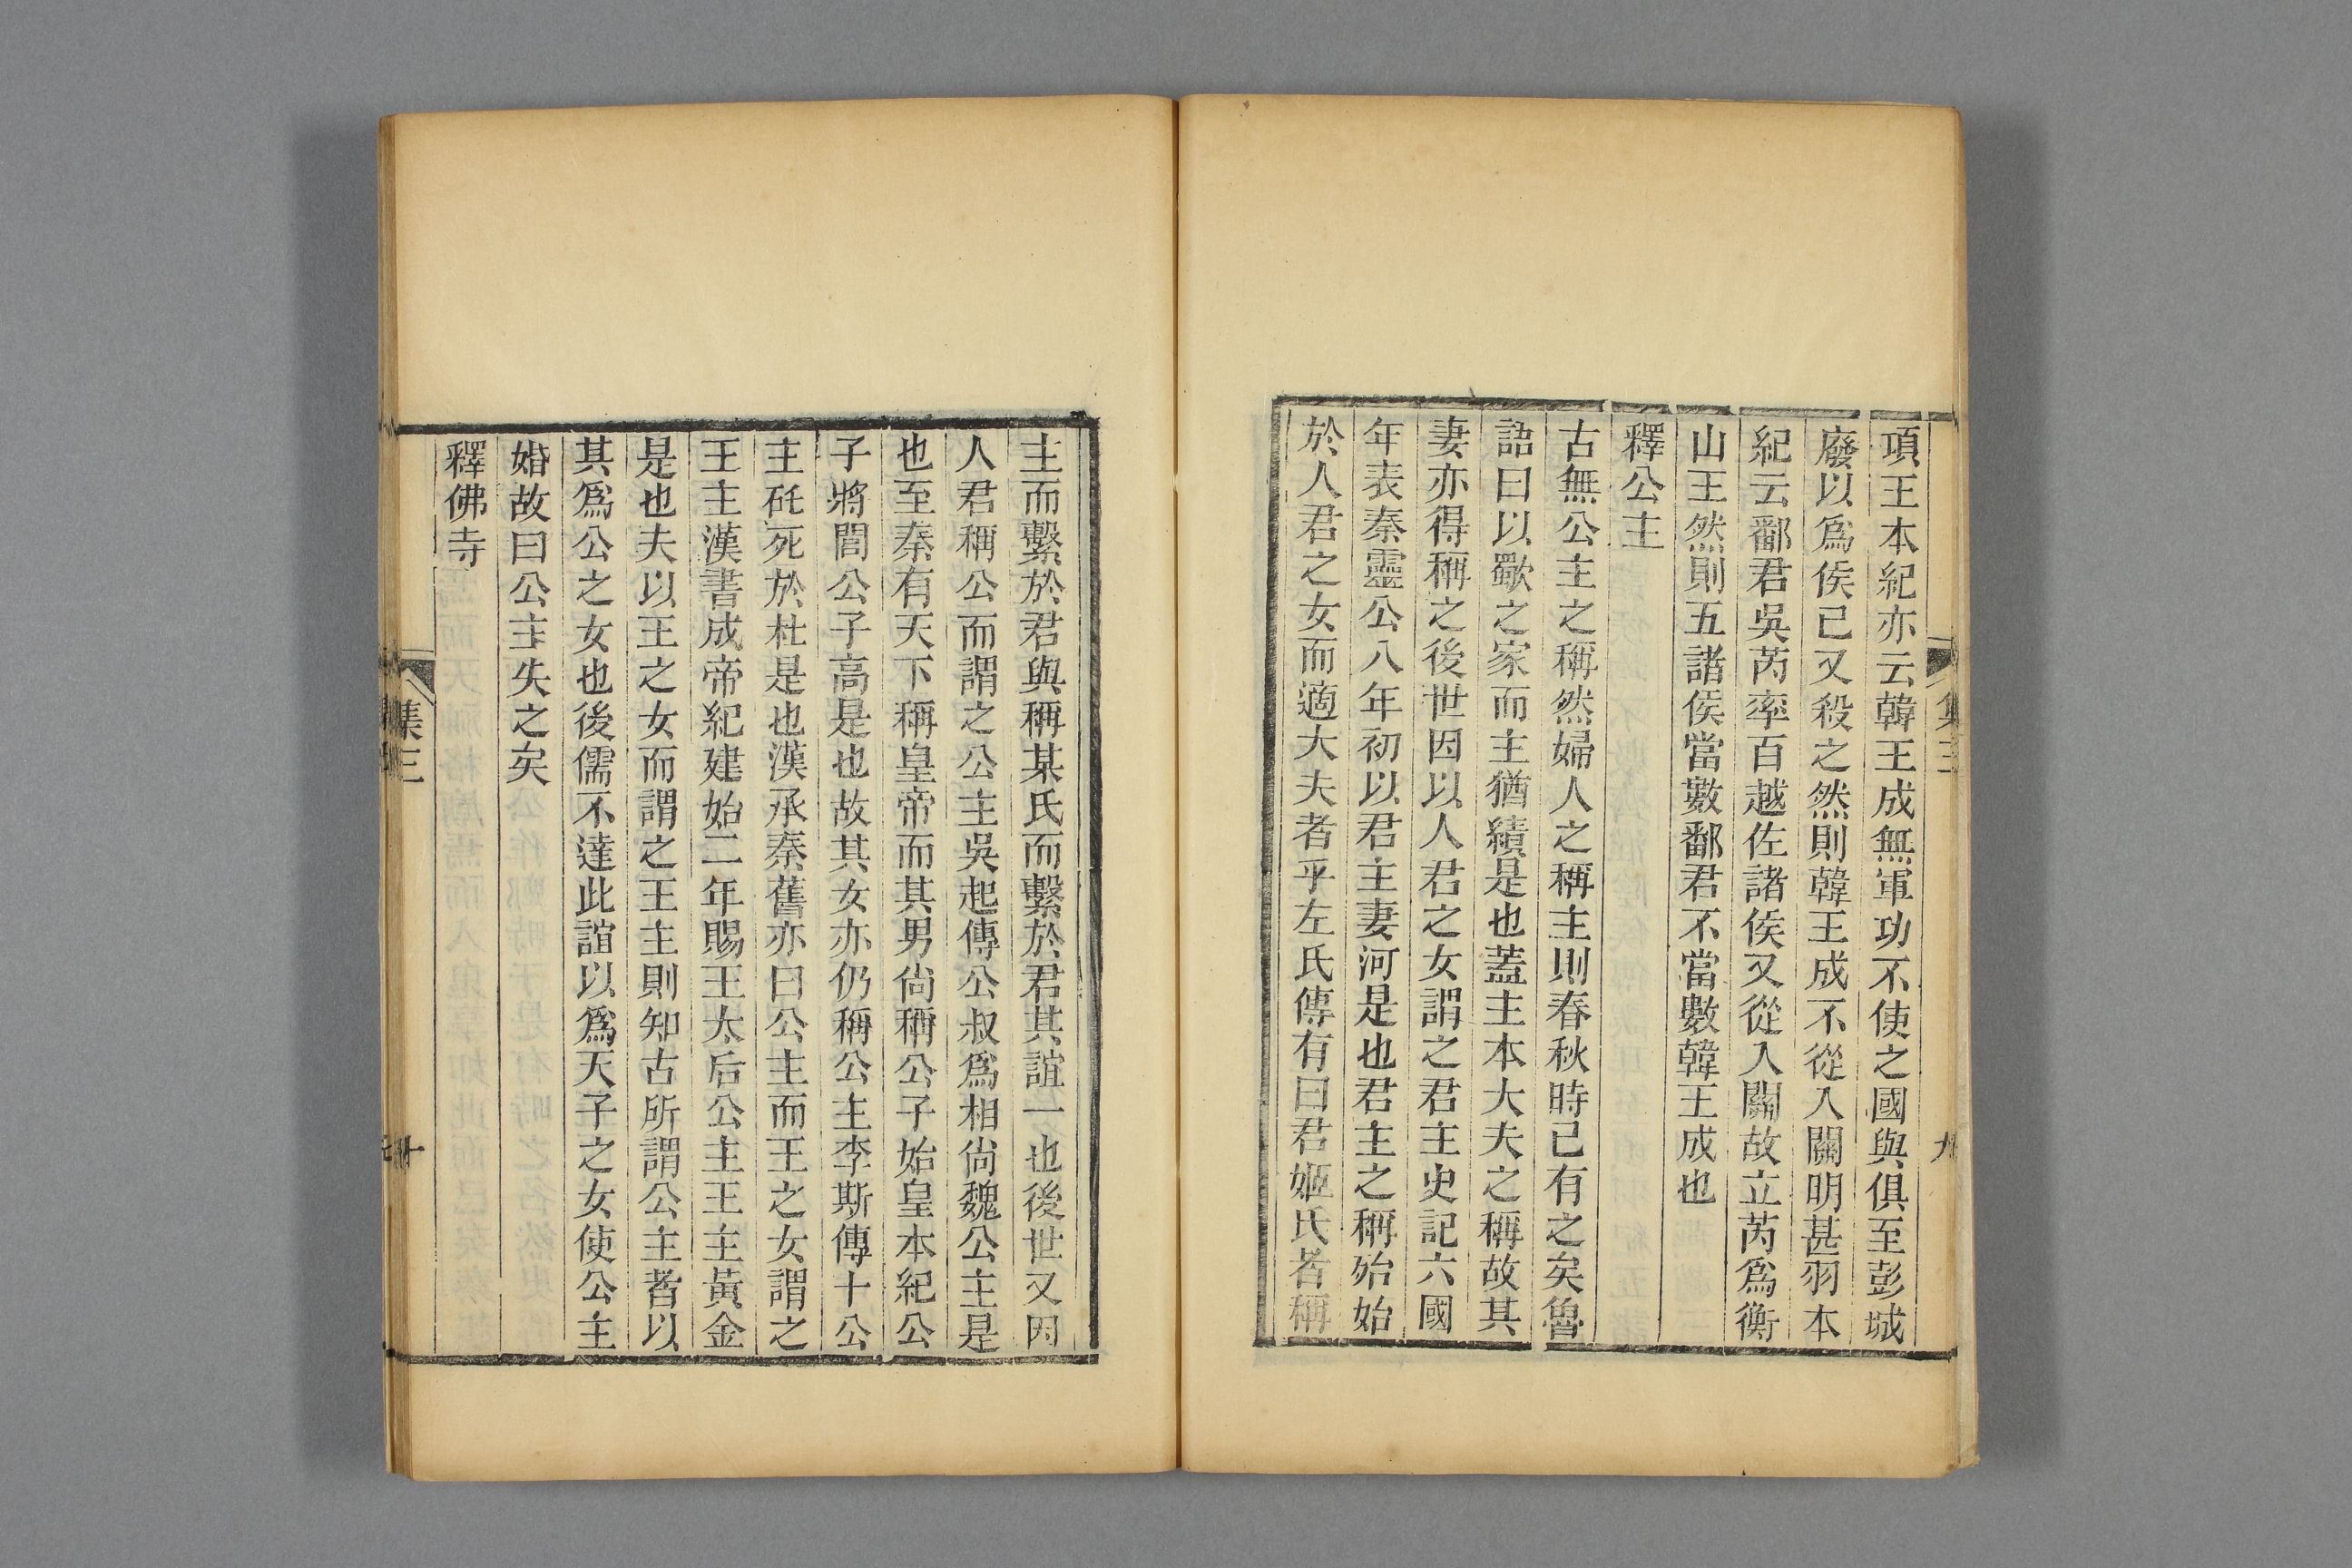 項王本紀亦云韓王成無軍功不使之國與俱至彭城
廢以爲侯已又殺之然則韓王成不從入關明甚羽本
紀云鄱君吳芮率百越佐諸侯又從入關故立芮爲衡
山王然則五諸侯當數鄱君不當數韓王成也
釋公主
古無公主之稱然婦人之稱主則春秋時已有之矣魯
語曰以歜之家而主猶績是也蓋主本大夫之稱故其
妻亦得稱之後世因以人君之女謂之君主史記六國
年表秦靈公八年初以君主妻河是也君主之稱殆始
於人君之女而適大夫者乎左氏傳有曰君姬氏者稱
主而繫於君與稱某氏而繫於君其誼一也後世又因
人君稱公而謂之公主吳起傳公叔爲相尙魏公主是
也至秦有天下稱皇帝而其男尙稱公子始皇本紀公
子將閭公子高是也故其女亦仍稱公主李斯傳十公
主矺死於杜是也漢承秦舊亦曰公主而王之女謂之
王主漢書成帝紀建始二年賜王太后公主王主黃金
是也夫以王之女而謂之王主則知古所謂公主者以
其爲公之女也後儒不達此誼以爲天子之女使公主
婚故曰公主失之矣
釋佛寺
集三
十